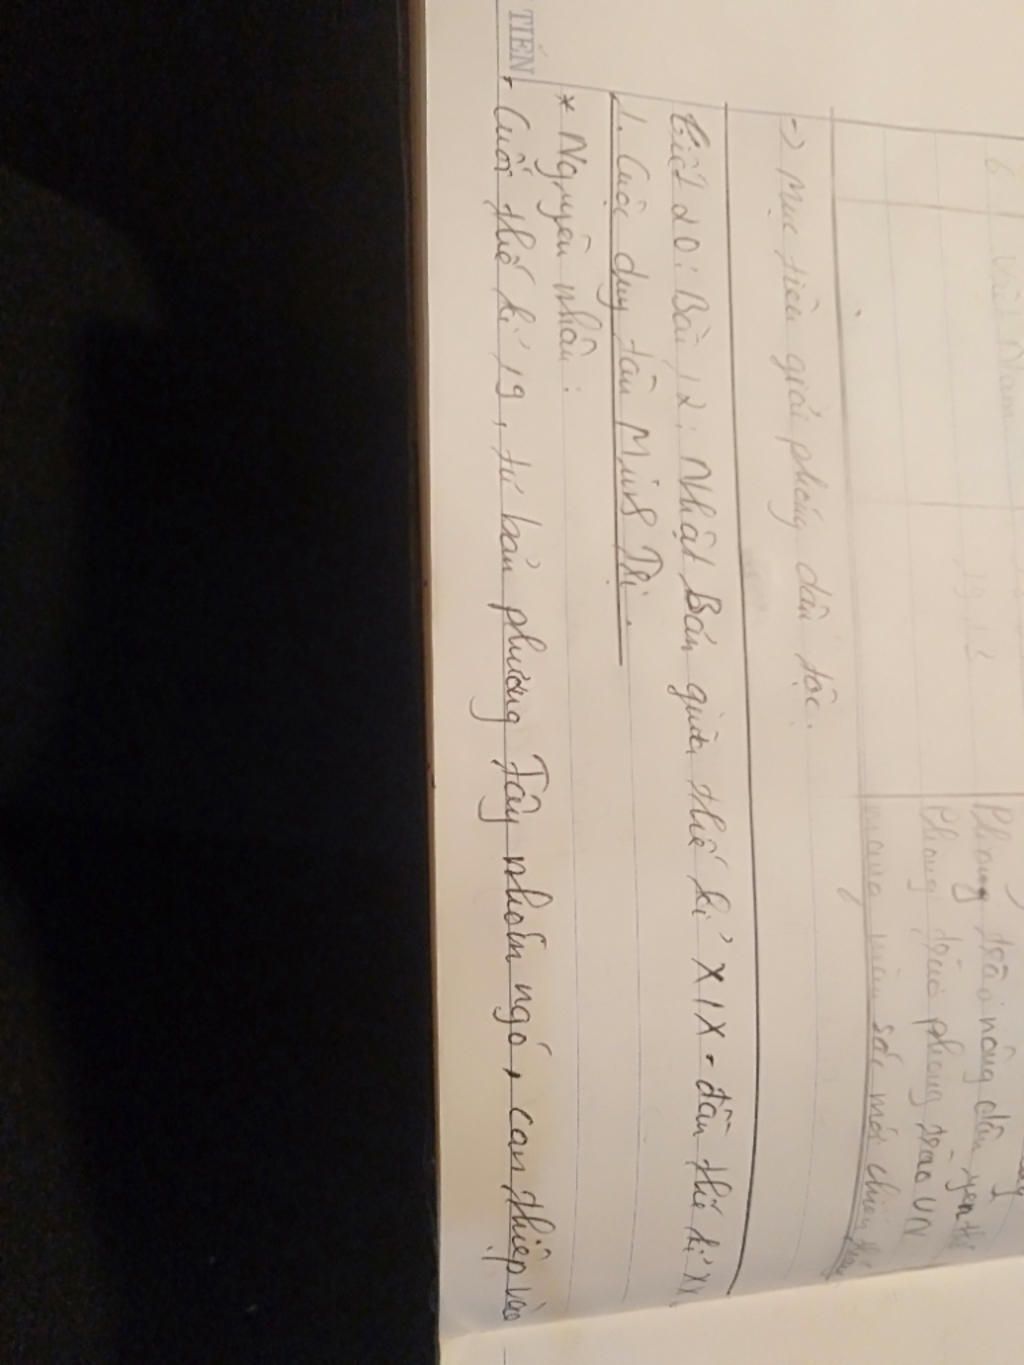 6 Việt Nam 1913 Phong trào nông dân Yên thế
Phong trào phong trào VN
mang màu sắc mới
-> Mục tiêu giải phóng dân tộc.
Tiết 20: Bài 12: Nhật Bản giữa thế kỉ XIX - đầu thế kỉ XX
1. Cuộc duy tân Minh Trị.
* Nguyên nhân:
TIẾN
- Cuối thế kỉ 19, tư bản phương Tây nhòm ngó, can thiệp vào